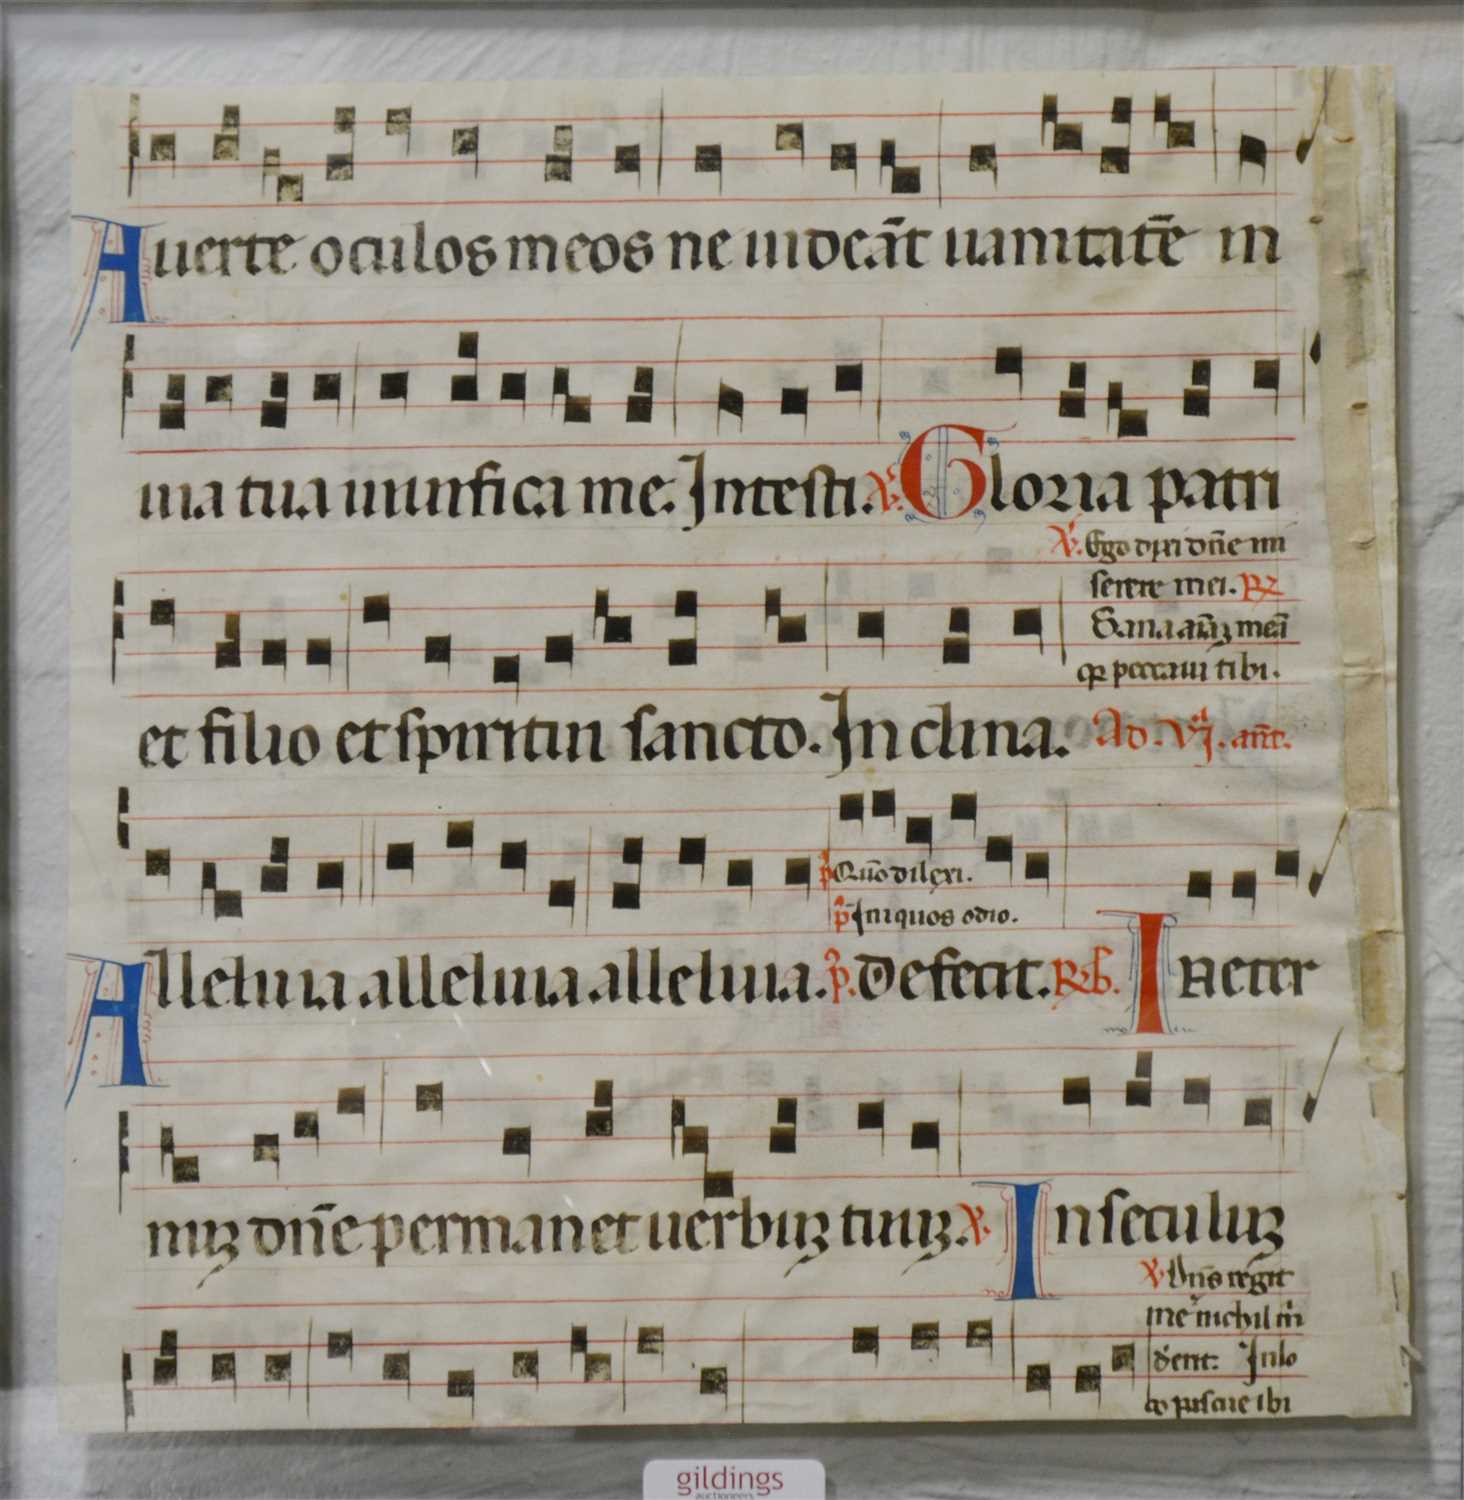 Auerte oculos meos ne uideāt uanitatē in
uia tua uiuifica me. Intesti. ℣. Gloria patri
℣. Ego dixi dn̄e mi
serere mei. ℞
Sana aīaꝫ meā
qꝛ peccaui tibi.
et filio et spiritui sancto. Inclina. Ad. vj. ant̄.
p̄ Quō dilexi.
p̄ Iniquos odio.
Alleluia alleluia alleluia. p̄. Defecit. ℞b. In eter
nuꝫ dn̄e permanet uerbuꝫ tuuꝫ ℣. In seculuꝫ
℣ Dn̄s regit
me nichil m̄
deerit: In lo
co pascue ibi
gildings
auctioneers